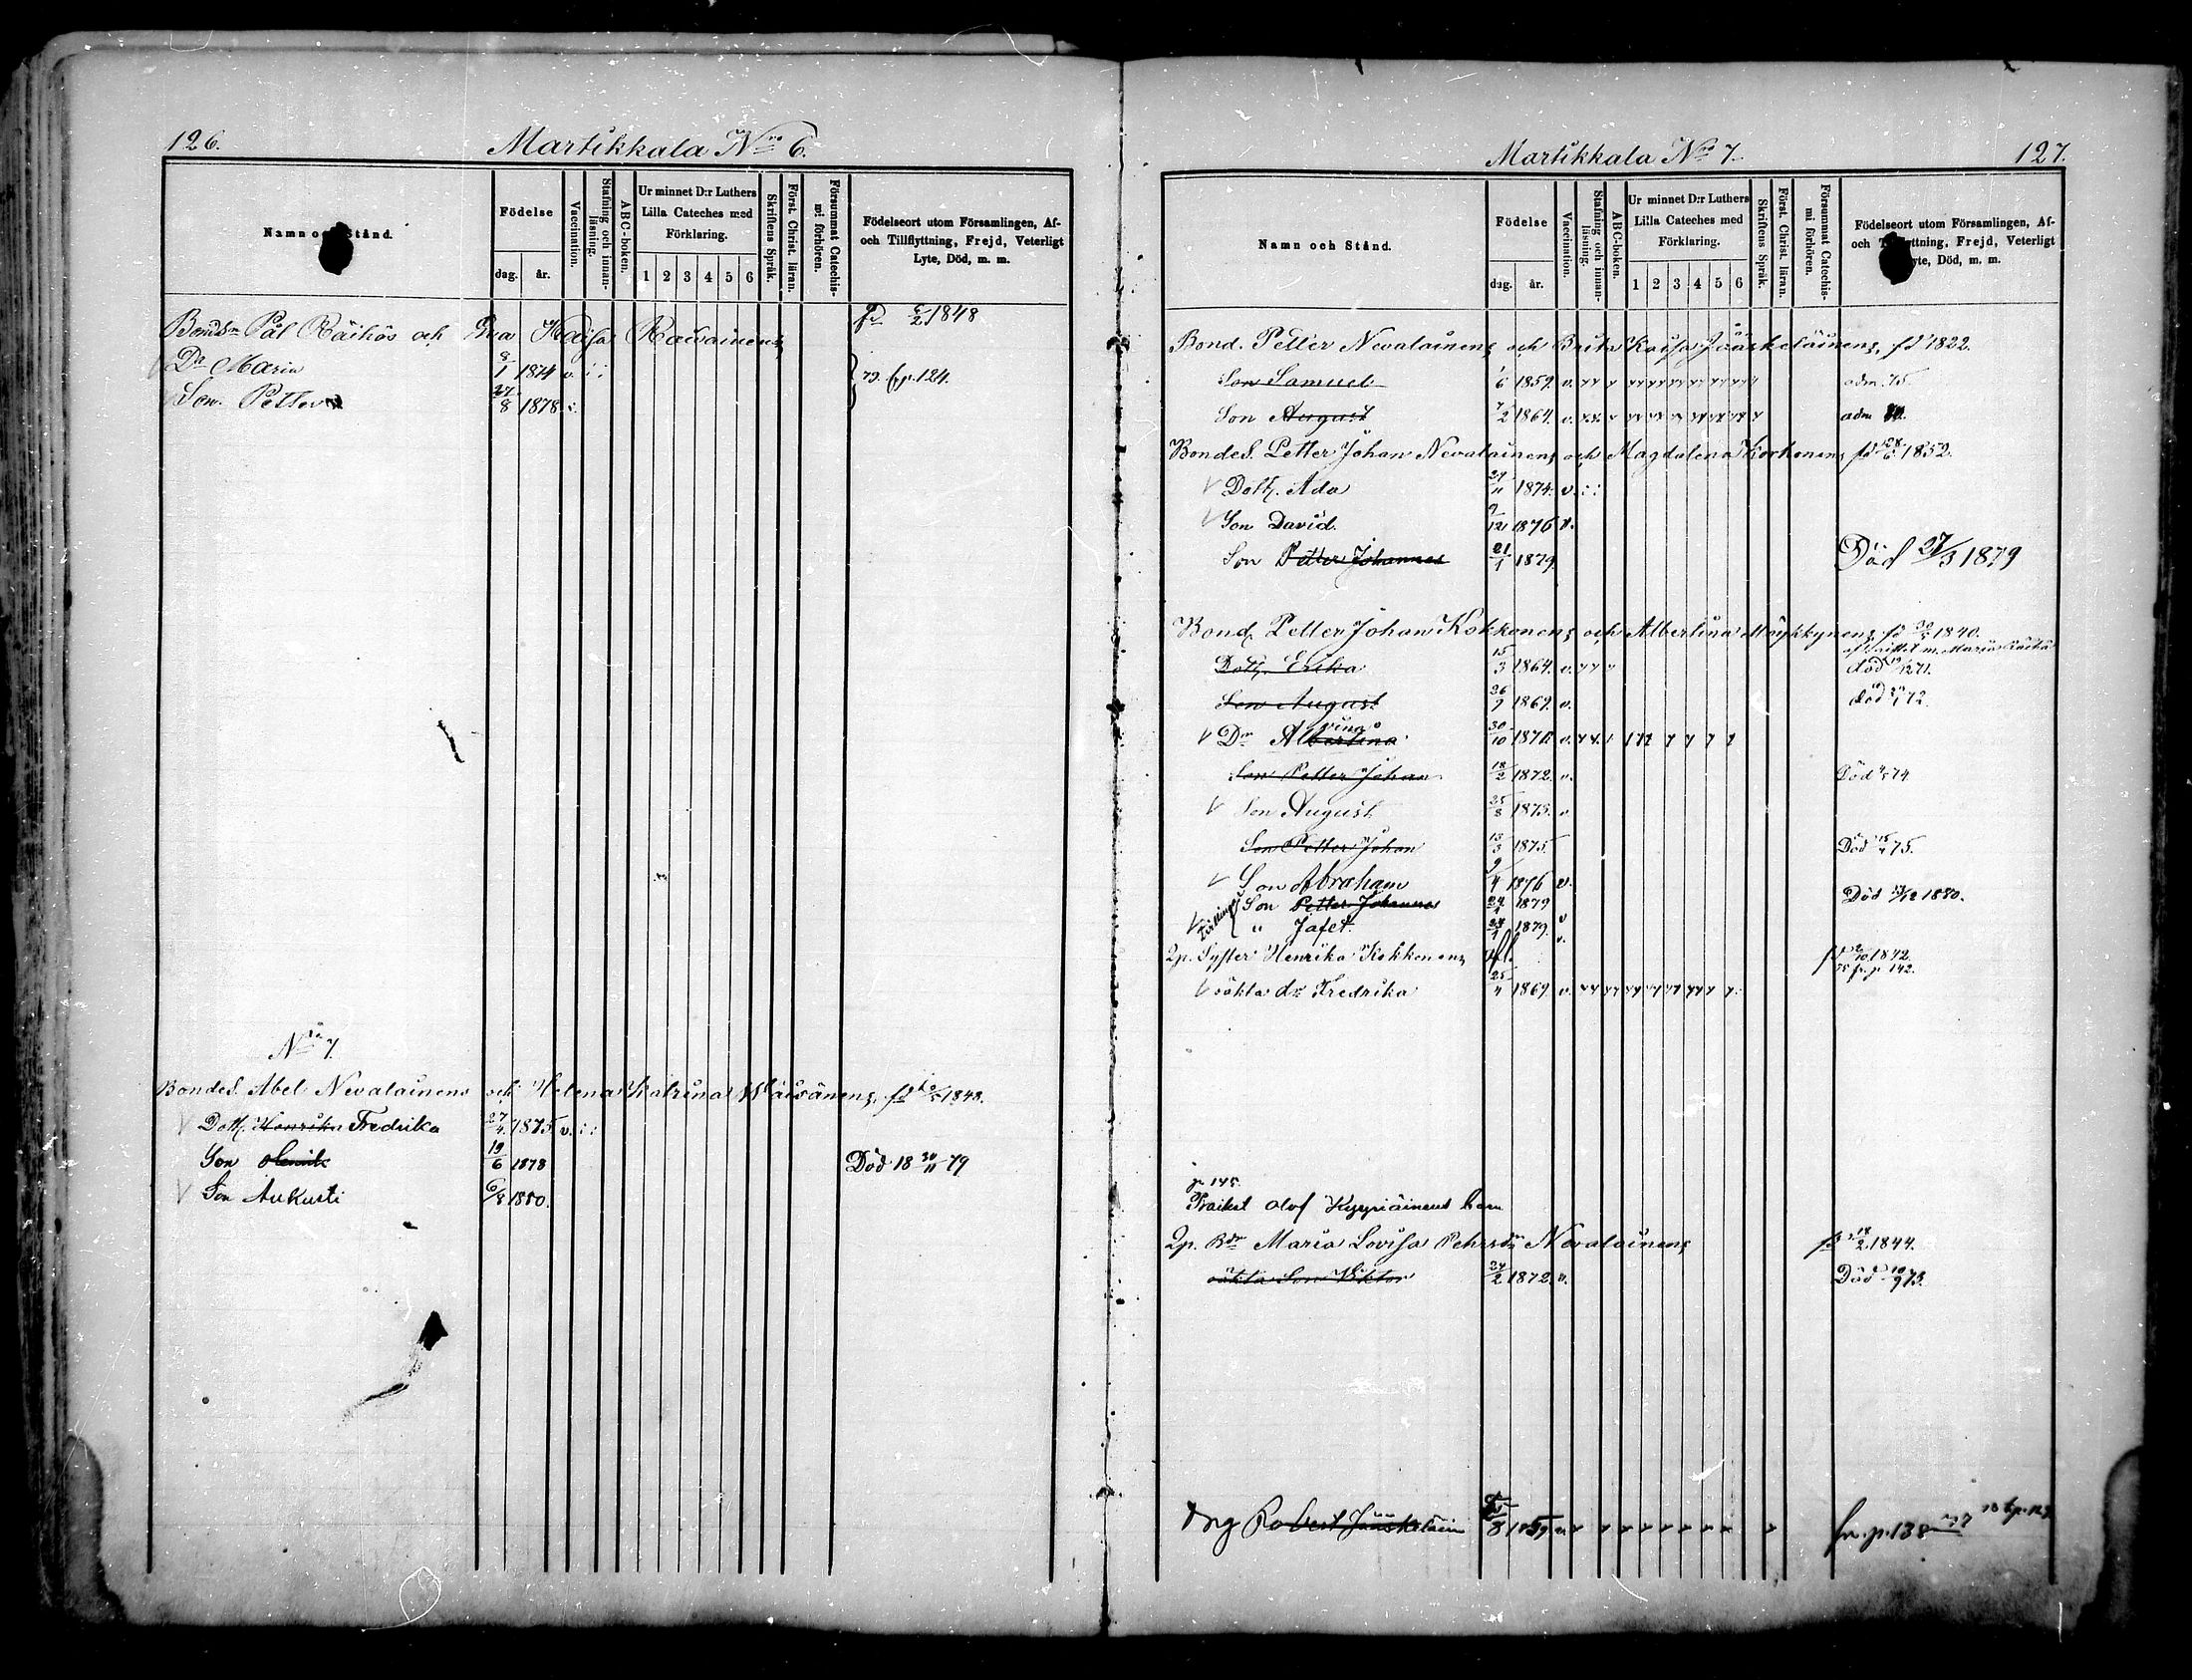 126. Martikkala N:o 6.
Namn och Stånd.
Födelse
dag. år.
Vaccination.
Stafning och innan-läsning.
ABC-boken.
Ur minnet D:r Luthers Lilla Cateches med Förklaring.
1 2 3 4 5 6
Skriftens Språk.
Först. Christ. läran.
Försummat Catechis-mi förhören.
Födelseort utom Församlingen, Af- och Tillflyttning, Frejd, Veterligt Lyte, Död, m. m.
Pål Räihäs och Kaisa fd 1848
D:r Maria 8/1 1874 v. : : 79. fr p. 124.
Son Petter 27/8 1878 :.
N:o 7.
BondeS. Abel Nevalainens och Helena Katrina Väisänens, fd 1848.
Dott. Henrika Fredrika 27/4 1875 v. : :
Son Henrik 19/6 1878 Död 18 30/11 79
Son Aukusti 6/8 1880.
Martikkala N:o 7. 127.
Namn och Stånd.
Födelse
dag. år.
Vaccination.
Stafning och innan-läsning.
ABC-boken.
Ur minnet D:r Luthers Lilla Cateches med Förklaring.
1 2 3 4 5 6
Skriftens Språk.
Först. Christ. läran.
Försummat Catechis-mi förhören.
Födelseort utom Församlingen, Af- och Tillflyttning, Frejd, Veterligt Lyte, Död, m. m.
Bond. Petter Nevalainens och Brita Kaisa Jääskeläinens, fd 1822.
Son Samuel 1859. v. adm. 75.
Son August 7/2 1864. v. adm
BondeS. Petter Johan Nevalainens och Magdalena Korhonens fd 28/6 1852.
Dott. Ada 27/11 1874. v. : :
Son David. 9/12 1876 v.
Son Petter Johannes 21/1 1879. Död 27/3 1879
Bond. Petter Johan Kokkonens och Albertina Möykkynens fd 1840.
Dott. Erika 15/3 1864. v. död 71.
Son August 26/7 1869. v. död 72.
D:r Albertina vina 30/10 1870 v.
Son Petter Johan 18/2 1872. v. Död 74
Son August 25/8 1873. v.
Son Petter Johan 13/3 1875. Död 15/4 75.
Son Abraham 9/4 1876 v.
Tvillingar Son Petter Johannes 24/1 1879 v Död /12 1880.
" Jafet. 24/1 1879. v.
Syster Henrika Kokkonens fd /10 1842. 75 fr. p 142.
oäkta d:r Fredrika 25/4 1869 v.
p 145.
Olof barn
Maria Lovisa Pehrsd:r Nevalainens fd 18/2 1844.
oäkta Son Viktor 24/2 1872. v. Död 10/9 73.
Drg Robert Jääskeläin /8 1859 v fr. p. 138